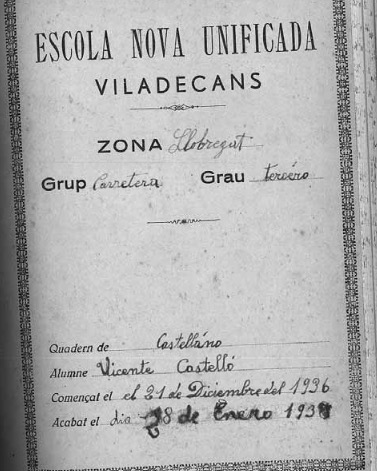 ESCOLA NOVA UNIFICADA
VILADECANS
ZONA Llobregat
Grup Carretera Grau tercero
Quadern de Castellano
Alumne Vicente Castelló
Començat el el 21 de Diciembre del 1936
Acabat el dia 28 de Enero 1937